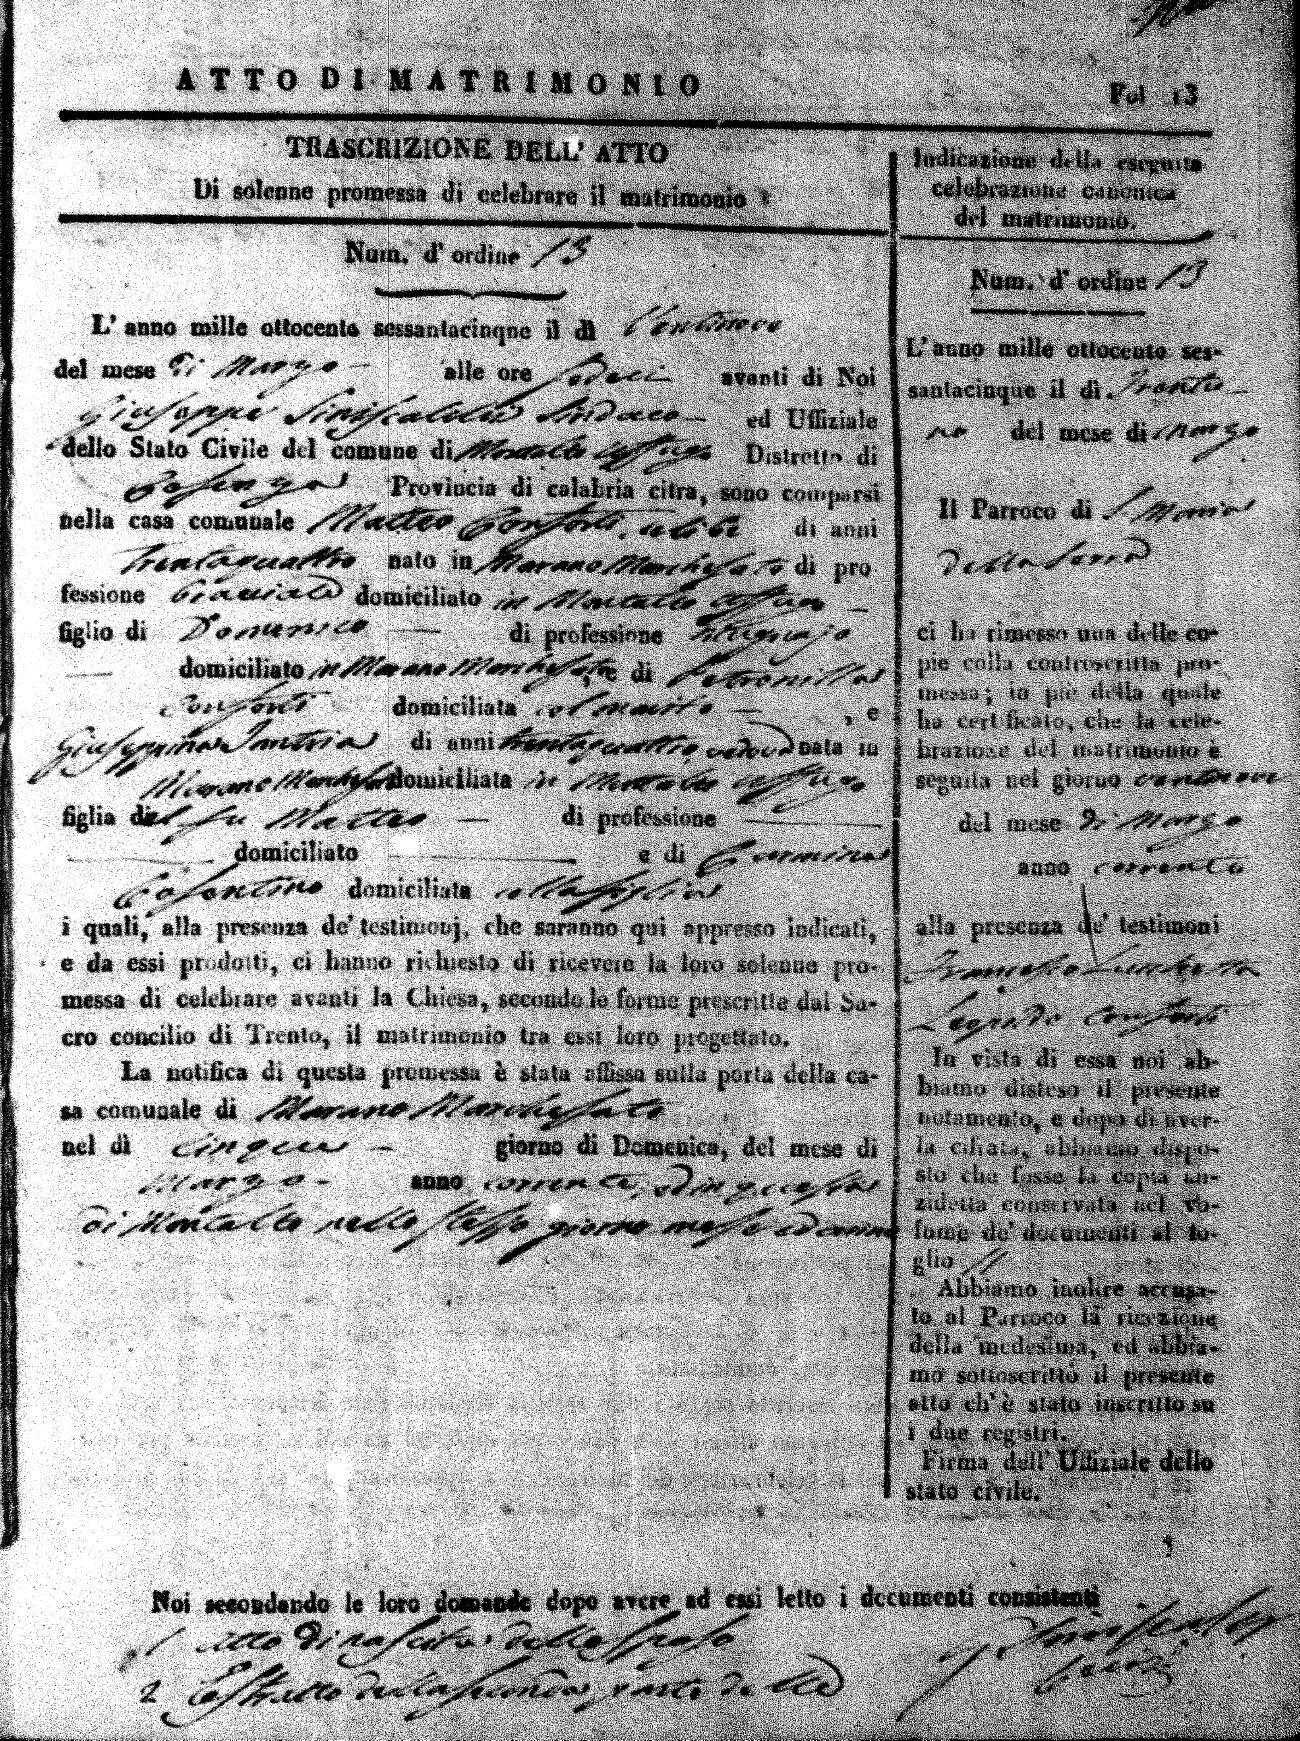 ATTO DI MATRIMONIO
Fol 13
TRASCRIZIONE DELL' ATTO
Di solenne promessa di celebrare il matrimonio
Num. d' ordine 13
L' anno mille ottocento sessantacinque il dì Ventinove
del mese di Marzo alle ore sedeci avanti di Noi
Giuseppe Siniscalchi Sindaco ed Uffiziale
dello Stato Civile del comune di Montalto Uffugo Distretto di
Cosenza Provincia di calabria citra, sono comparsi
nella casa comunale Matteo Conforti, celibe di anni
trentaquattro nato in Marano Marchesato di pro
fessione bracciale domiciliato in Montalto Uffugo
figlio di Domenico di professione
domiciliato in Marano Marchesato, e di Petronilla
Conforti domiciliata col marito, e
Giuseppina di anni trentaquattro, vedova nata in
Marano Marchesato domiciliata in Montalto Uffugo
figlia del fu Matteo di professione
domiciliato e di Carmina
Cosentino domiciliata colla figlia
i quali, alla presenza de' testimonj, che saranno qui appresso indicati,
e da essi prodotti, ci hanno richiesto di ricevere la loro solenne pro-
messa di celebrare avanti la Chiesa, secondo le forme prescritte dal Sa-
cro concilio di Trento, il matrimonio tra essi loro progettato.
La notifica di questa promessa è stata affissa sulla porta della ca-
sa comunale di Marano Marchesato
nel dì cinque giorno di Domenica, del mese di
Marzo anno corrente, ed in questa
di Montalto nello stesso giorno mese ed anno
Noi secondando le loro domande dopo avere ad essi letto i documenti consistenti
1 Atto di nascita dello sposo
2 Estratto della seconda parte di
Indicazione della eseguita
celebrazione canonica
del matrimonio.
Num. d' ordine 13
L' anno mille ottocento ses-
santacinque il dì. Trentu-
no del mese di Marzo
Il Parroco di S. Maria
della Serra
ci ha rimesso una delle co-
pie colla controscritta pro-
messa; in piè della quale
ha certificato, che la cele-
brazione del matrimonio è
seguita nel giorno ventinove
del mese di Marzo
anno corrente
alla presenza de' testimoni
Francesco
Conforti
In vista di essa noi ab-
biamo disteso il presente
notamento, e dopo di aver-
la cifrata, abbiamo dispo-
sto che fosse la copia an-
zidetta conservata nel vo-
lume de' documenti al fo-
glio
Abbiamo inoltre accusa-
to al Parroco la ricezione
della medesima, ed abbia-
mo sottoscritto il presente
atto ch' è stato inscritto su
i due registri.
Firma dell' Uffiziale dello
stato civile.